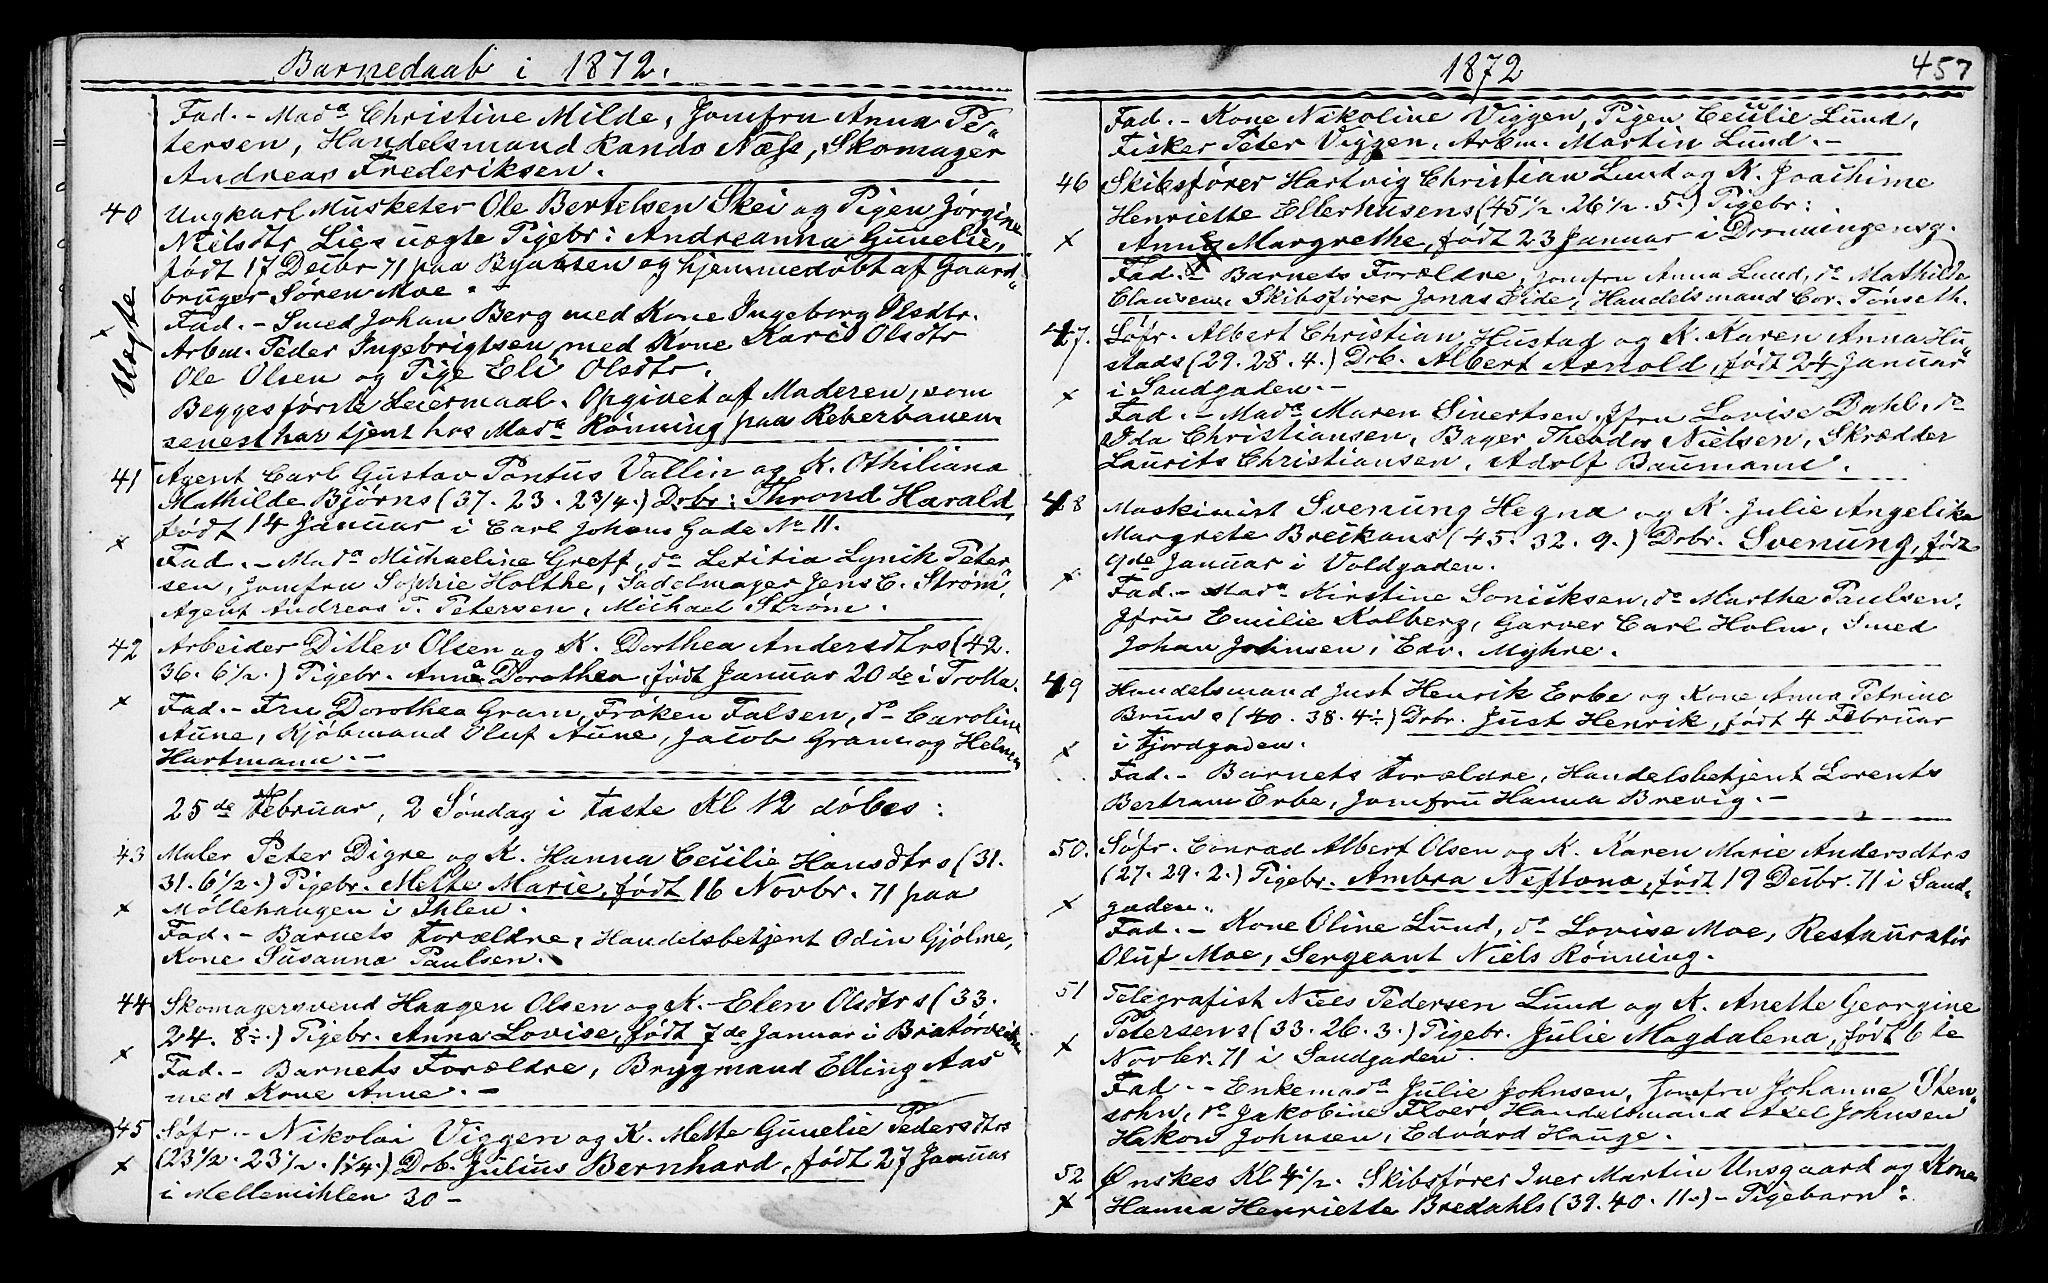 Barnedaab i 1872.
Fad. - Mad<sup>a</sup> Christine Milde, Jomfru Anna Pe-
tersen, Handelsmand Rando Næss, Skomager
Andreas Frederiksen.
40 Ungkarl Musketer Ole Bertelsen Skei og Pigen Jörgine
Nielsdtr Lies uægte Pigebr: Andreanna Gunelie,
født 17 Decbr 71 paa Byaasen og hjemmedøbt af Gaard-
bruger Søren Moe.
Uægte
Fad. - Smed Johan Berg med Kone Ingeborg Olsdtr.
× Arbm. Peder Ingebrigtsen med Kone Kari Olsdtr
Ole Olsen og Pige Eli Olsdtr.
Begges første Leiermaal. Opgivet af Moderen, som
senest har tjent hos Mad<sup>a</sup> Rønning paa Reberbanen
41 Agent Carl Gustav Pontus Vallin og K. Othiliana
Mathilde Bjørns (37. 23. 2 3/4.) Drbr: Thrond Harald
født 14 Januar i Carl Johans Gade No 11.
×
Fad. - Mad<sup>a</sup> Michaeline Greff, do Letitia Lynik Peter-
sen, Jomfru Sophie Holthe, Sadelmager Jens C. Strøm,
Agent Andreas T. Petersen, Michael Strøm.
42 Arbeider Ditlev Olsen og K. Dorthea Andersdtrs (42.
36. 6 1/2.) Pigebr. Anna Dorothea, født Januar 20de i Trolla.
× Fad. - Fru Dorothea Gram, Frøken Falsen, do Caroline
Aune, Kjøbmand Oluf Aune, Jacob Gram og Helmer
Hartmann. -
25de Februar, 2 Søndag i Faste Kl 12 döbes:
43 Maler Peter Digre og K. Hanna Cecilie Hansdtrs (31.
31. 6 1/2.) Pigebr. Mette Marie, født 16 Novbr. 71 paa
× Møllehaugen i Ihlen.
Fad. - Barnets Forældre, Handelsbetjent Odin Gjølme,
Kone Susanna Paulsen.
44 Skomagersvend Haagen Olsen og K. Elen Olsdtrs (33.
24. 8 1/2.) Pigebr. Anna Lovise, født 7de Januar i Bratørveiten
× Fad. - Barnets Forældre, Brygmand Elling Aas
med Kone Anne. -
45 Søfr. - Nikolai Viggen og K. Mette Gunelie Pedersdtrs
× (23 1/2. 23 1/2. 1 1/4.) Drb. Julius Bernhard, født 27 Januar
i Mellemihlen 30 -
1872 457
Fad. - Kone Nikoline Viggen, Pigen Cecilie Lund,
Fisker Peter Viggen, Arbm. Martin Lund. -
46 Skibsfører Hartvig Christian Lund og K. Joachime
Henriette Ellerhusens (45 1/2. 26 1/2. 5.) Pigebr:
× Anna Margrethe, født 23 Januar i Dronningensg.
Fad. - Barnets Forældre, Jomfru Anna Lund, do Mathilde
Clausen, Skibsfører Jonas Eide, Handelsmand Cor. Tønseth.
47. Søfr. Albert Christian Hustad og K. Karen Anna Hu-
stads (29. 28. 4.) Drb. Albert Arnold, født 24 Januar
× i Sandgaden. -
Fad. - Mad<sup>a</sup> Maren Sivertsen, Jfru Lovise Dahl, do
Ida Christiansen, Bager Theodor Nielsen, Skrædder
Laurits Christiansen, Adolf Baumann.
48 Maskinist Svenung Hegna og K. Julie Angelika
Margrete Breikans (45. 32. 9.) Drbr. Svenung, født
9de Januar i Voldgaden.
× Fad. - Mad<sup>a</sup> Kirstine Sonicksen, do Marthe Paulsen,
Jfru Emilie Kolberg, Garver Carl Holm, Smed
Johan Johnsen, Edv. Myhre.
49 Handelsmand Just Henrik Erbe og Kone Anna Petrine
Bruns (40. 38. 4 1/2) Drbr. Just Henrik, født 4 Februar
× i Fjordgaden.
Fad. - Barnets Forældre, Handelsbetjent Lorents
Bertram Erbe, Jomfru Hanna Brevig. -
50. Søfr. Conrad Albert Olsen og K. Karen Marie Andersdtrs
(27. 29. 2.) Pigebr. Ambra Neftona, født 19 Decbr. 71 i Sand-
× gaden.
Fad. - Kone Oline Lund, do Lovise Moe, Restauratør
Oluf Moe, Sergeant Niels Rønning.
51 Telegrafist Niels Pedersen Lund og K. Anette Georgine
× Petersens (33. 26. 3.) Pigebr. Julie Magdalena, født 6te
Novbr. 71 i Sandgaden.
Fad. - Enkemad<sup>a</sup> Julie Johnsen, Jomfru Johanne Sten-
sohn, do Jakobine Floer, Handelsmand Axel Johnsen
Hakon Johnsen, Edvard Hauge.
52 Ønskes Kl 4 1/2. Skibsfører Iver Martin Unsgaard og Kone
× Hanna Henriette Bredahls (39. 40. 11.) - Pigebarn: